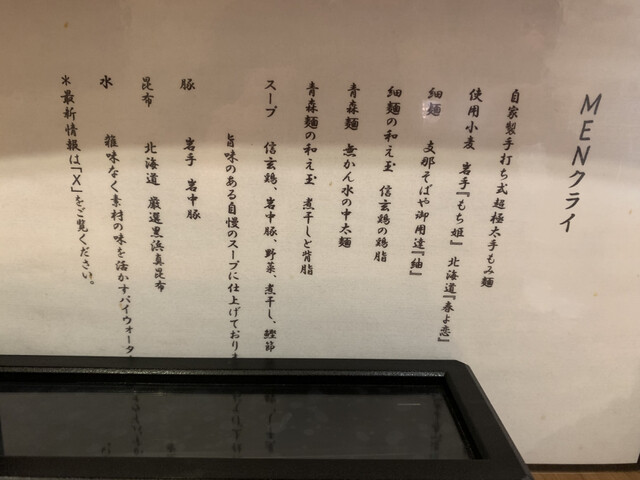 MENクライ
自家製手打ち式超極太手もみ麺
使用小麦 岩手『もち姫』 北海道『春よ恋』
細麺 支那そばや御用達『紬』
細麺の和え玉 信玄鶏の鶏脂
青森麺 無かん水の中太麺
青森麺の和え玉 煮干しと背脂
スープ 信玄鶏、岩中豚、野菜、煮干し、鰹節
旨味のある自慢のスープに仕上げており
豚 岩手 岩中豚
昆布 北海道 厳選黒浜真昆布
水 雑味なく素材の味を活かすパイウォータ
＊最新情報は「X」をご覧ください。